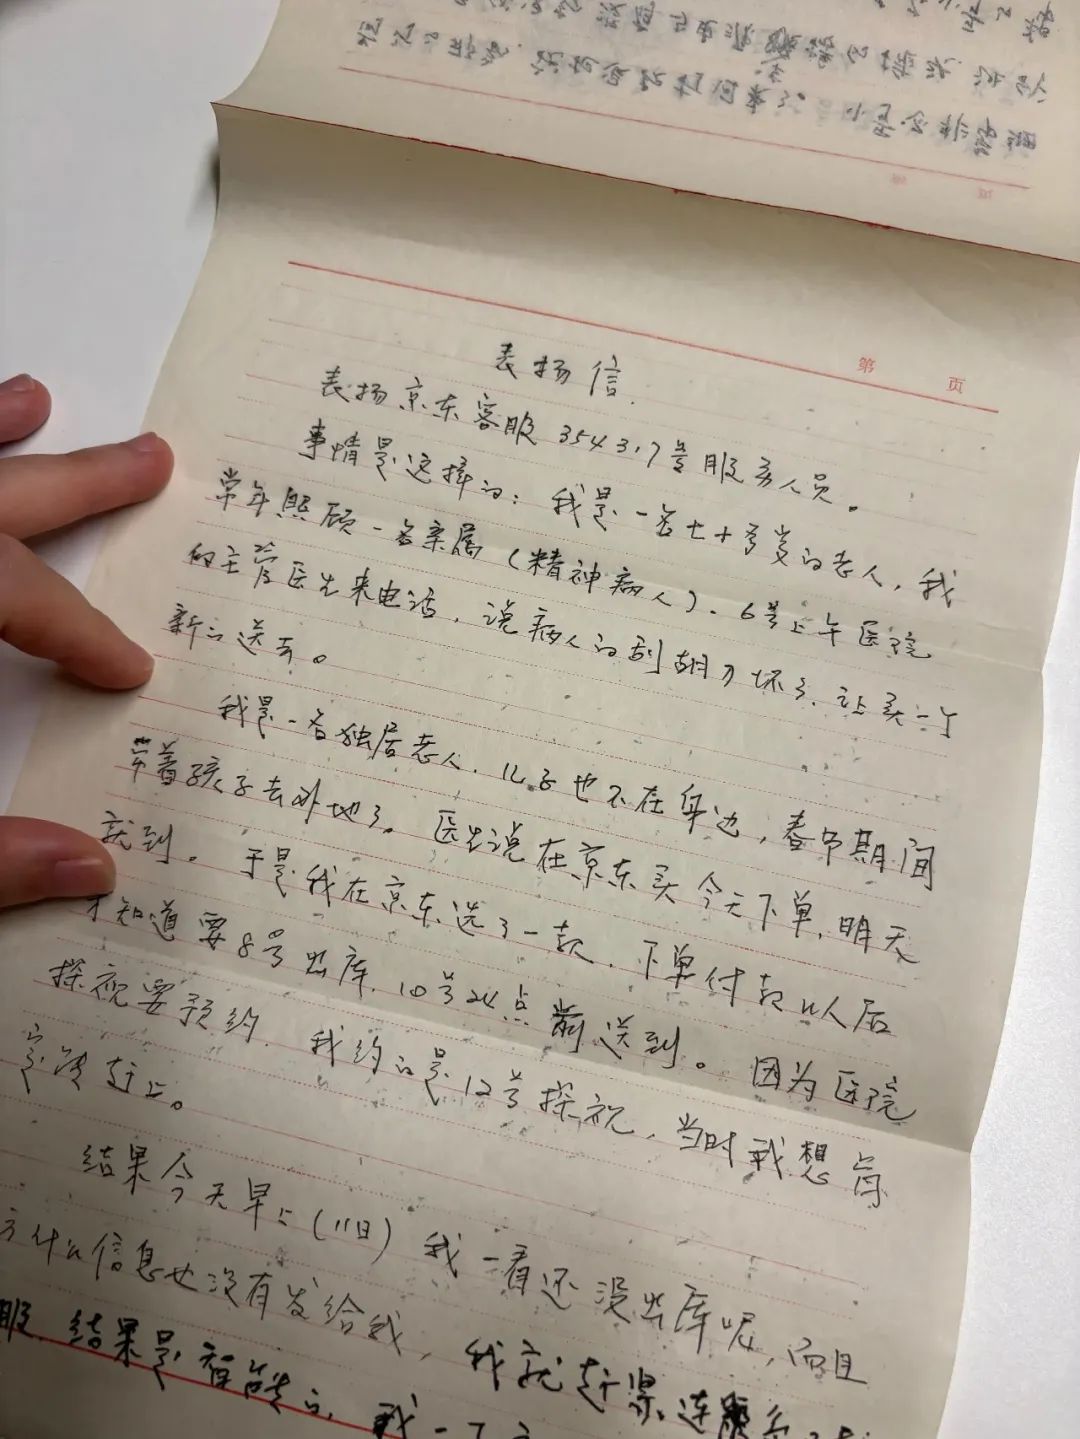 第 页
表扬信
表扬京东客服354317号服务人员。
事情是这样的：我是一名七十多岁的老人，我
常年照顾一名亲属（精神病人）．6号上午医院
的主管医生来电话，说病人的刮胡刀坏了，让买一个
新的送去。
我是一名独居老人，儿子也不在身边，春节期间
带着孩子去外地了。医生说在京东买今天下单，明天
就到。于是我在京东选了一款，下单付款以后
才知道要8号出库，10号24点前送到。因为医院
探视要预约，我约的是12号探视，当时我想肯
定能赶上。
结果今天早上（11日）我一看还没出库呢，而且
什么信息也没有发给我，我就赶紧连
服 结果是智能的 我一